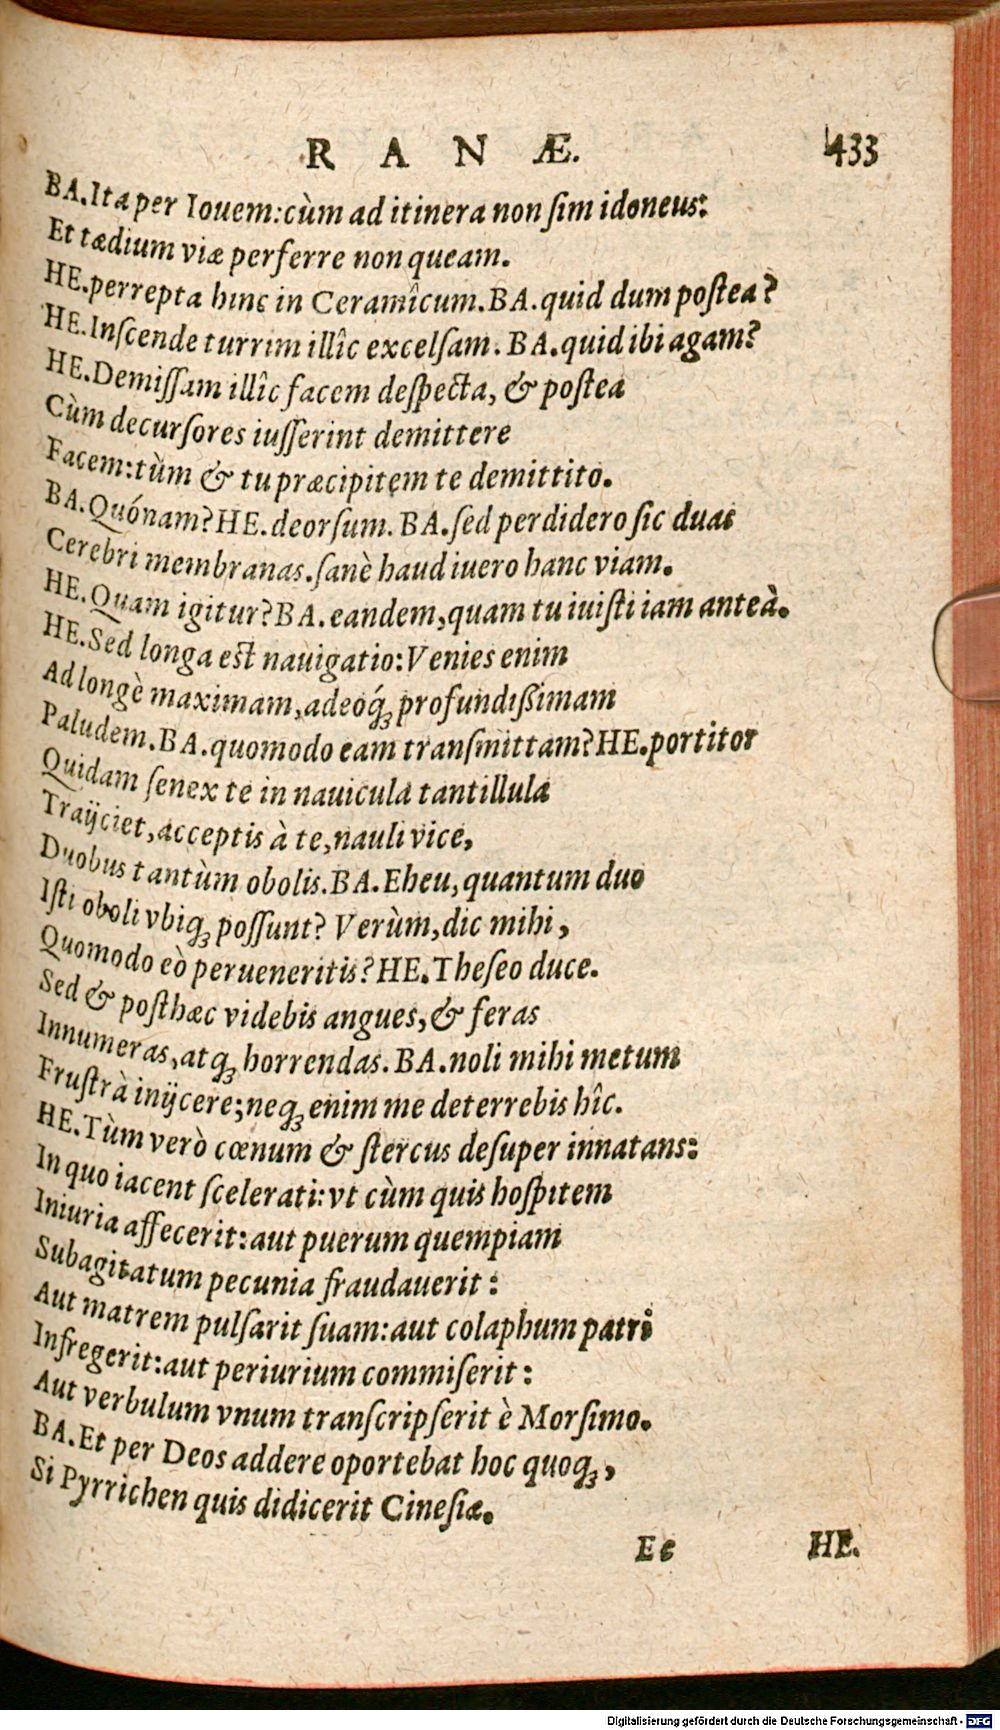 RANÆ. 433
BA. Ita per Iouem: cùm ad itinera non ſim idoneus:
Et tædium viæ perferre non queam.
HE. perrepta hinc in Ceramîcum. BA. quid dum poſtea?
HE. Inſcende turrim illîc excelſam. BA. quid ibi agam?
HE. Demiſſam illîc facem deſpecta, & poſtea
Cùm decurſores iuſſerint demittere
Facem: tùm & tu præcipitem te demittito.
BA. Quónam? HE. deorſum. BA. ſed perdidero ſic duas
Cerebri membranas. ſanè haud iuero hanc viam.
HE. Quam igitur? BA. eandem, quam tu iuiſti iam anteà.
HE. Sed longa eſt nauigatio: Venies enim
Ad longè maximam, adeoq́ꝫ profundißimam
Paludem. BA. quomodo eam tranſmittam? HE. portitor
Quidam ſenex te in nauicula tantillula
Traijciet, acceptis à te, nauli vice,
Duobus tantùm obolis. BA. Eheu, quantum duo
Iſti oboli vbiqꝫ poſſunt? Verùm, dic mihi,
Quomodo eò perueneritis? HE. Theſeo duce.
Sed & poſthæc videbis angues, & feras
Innumeras, atqꝫ horrendas. BA. noli mihi metum
Fruſtrà inijcere; neqꝫ enim me deterrebis hîc.
HE. Tùm verò cœnum & ſtercus deſuper innatans:
In quo iacent ſcelerati: vt cùm quis hoſpitem
Iniuria affecerit: aut puerum quempiam
Subagitatum pecunia fraudauerit:
Aut matrem pulſarit ſuam: aut colaphum patri
Infregerit: aut periurium commiſerit:
Aut verbulum vnum tranſcripſerit è Morſimo.
BA. Et per Deos addere oportebat hoc quoqꝫ,
Si Pyrrichen quis didicerit Cineſiæ.
Ee HE.
Digitalisierung gefördert durch die Deutsche Forschungsgemeinschaft - DFG